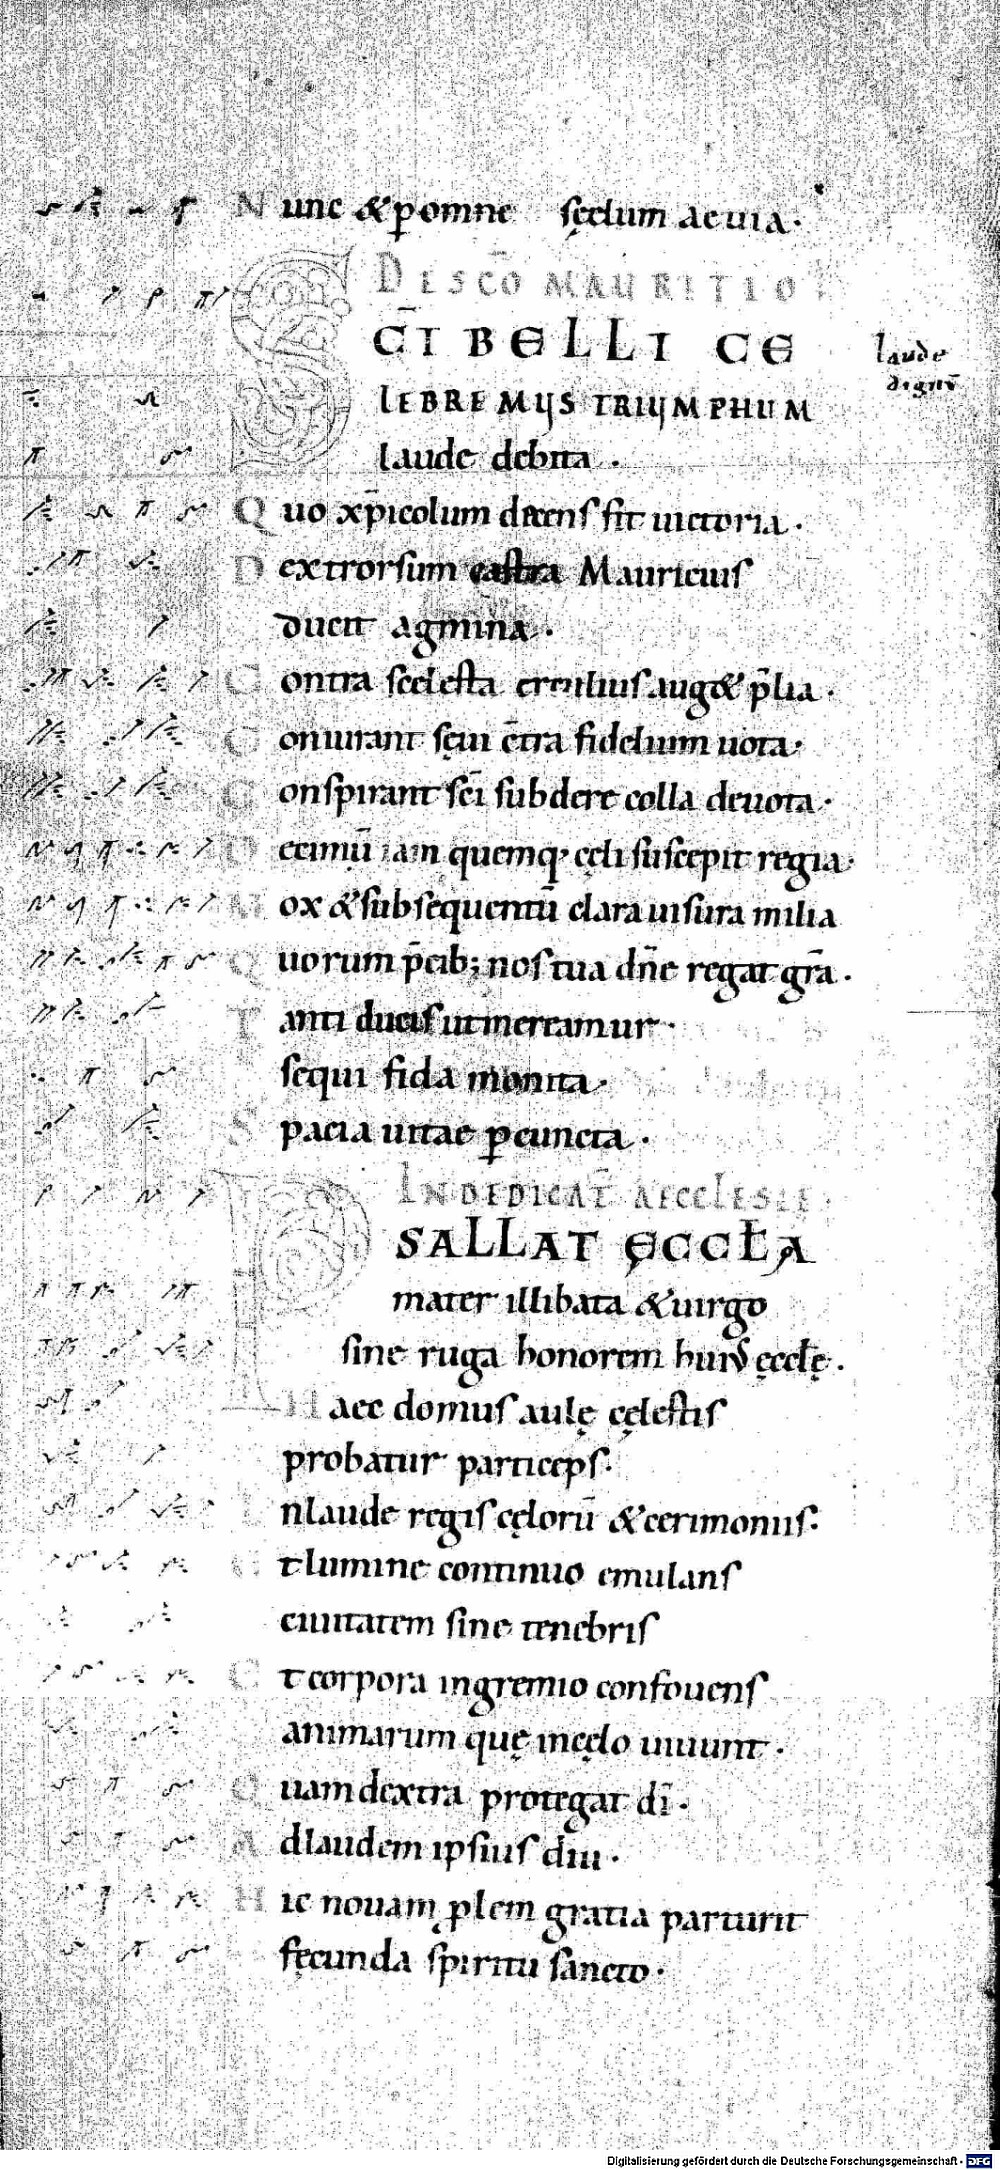 Nunc & p̱omne sęclum aeuia.
DE SC̄O MAURITIO.
SC̄I BELLI CE
LEBREMUS TRIUMPHUM
laude
dignū
laude debita.
Quo xp̄icolum decens fit uictoria.
Dextrorsum castra Mauricius
ducit agmina.
Contra scelesta erculius auget p̄lia.
Coniurant sęui c̄tra fidelium uota.
Conspirant sc̄i subdere colla deuota.
Decimū iam quemq; cęli suscepit regia.
Mox & subsequentū clara uisura milia
Quorum p̄cib; nos tua dn̄e regat gr̄a.
Tanti ducis ut mereamur.
sequi fida monita.
Spacia uitae p̱cuncta.
IN DEDICAT̄ AECCLESIE.
PSALLAT ĘCCŁA
mater illibata & uirgo
sine ruga honorem huiꝰ ęccłę.
Haec domus aulę cęlestis
probatur particeps.
In laude regis cęlorū & cerimoniis.
Et lumine continuo emulans
ciuitatem sine tenebris
Et corpora in gremio confouens
animarum quę in cęlo uiuunt.
Quam dextra protegat dī.
Ad laudem ipsius diu.
Hic nouam p̱lem gratia parturit
fęcunda spiritu sancto.
Digitalisierung gefördert durch die Deutsche Forschungsgemeinschaft - DFG